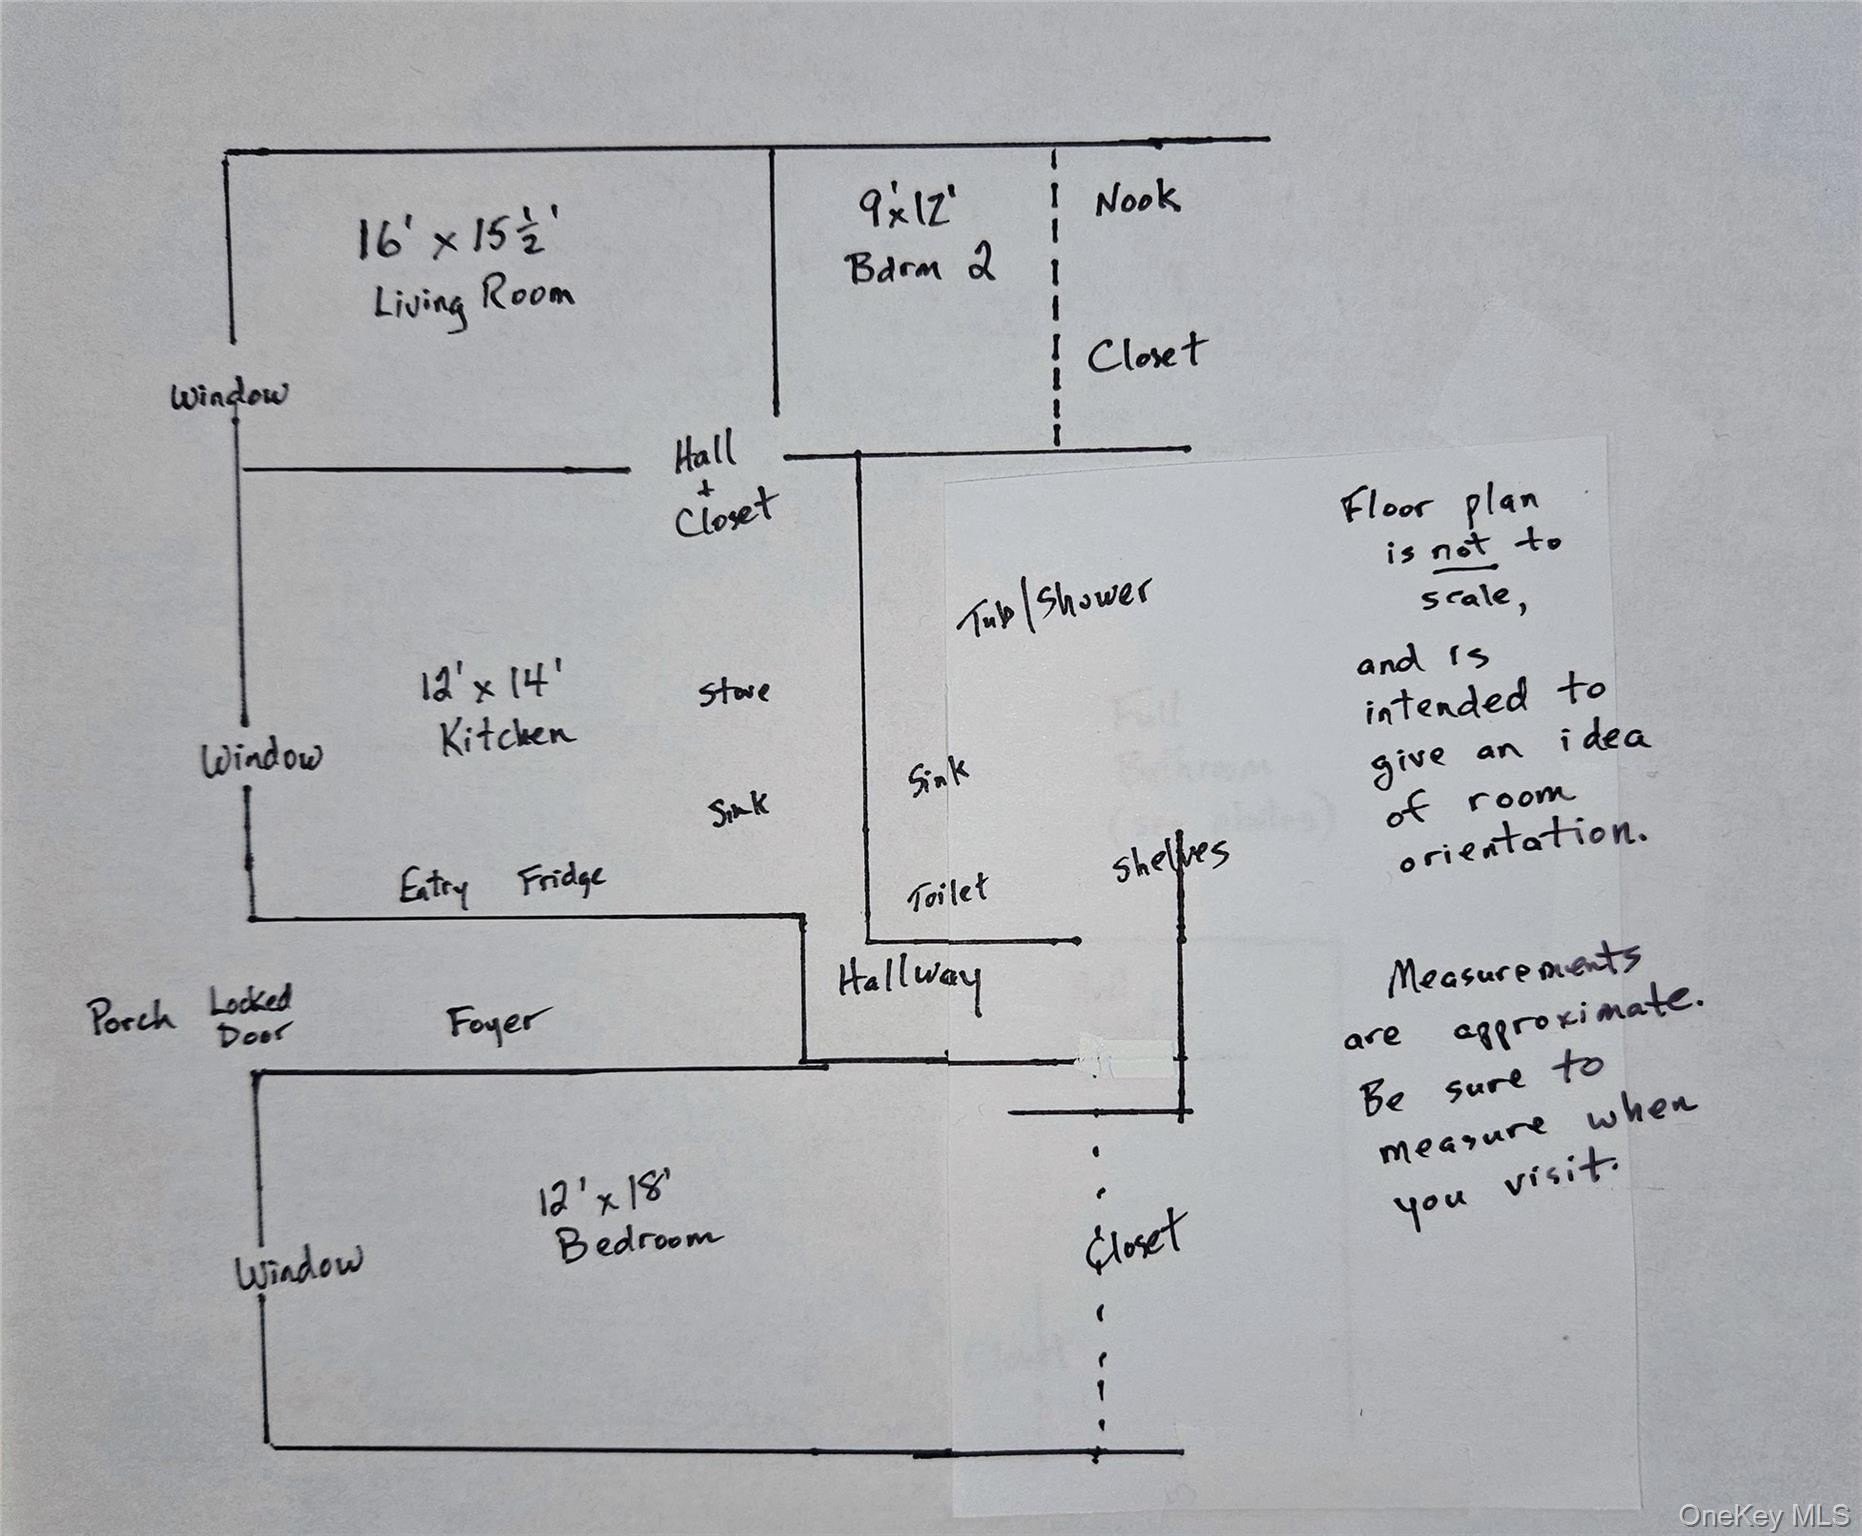 16' x 15 1/2'
Living Room
9' x 12'
Bdrm 2
Nook
Closet
Window
Hall
+
Closet
Floor plan
is not to
scale,
and is
intended to
give an idea
of room
orientation.
Tub/Shower
12' x 14'
Kitchen
Stove
Window
Sink
Sink
Shelves
Entry Fridge
Toilet
Hallway
Porch Locked
Door
Foyer
Measurements
are approximate.
Be sure to
measure when
you visit.
12' x 18'
Bedroom
Window
Closet
OneKey MLS